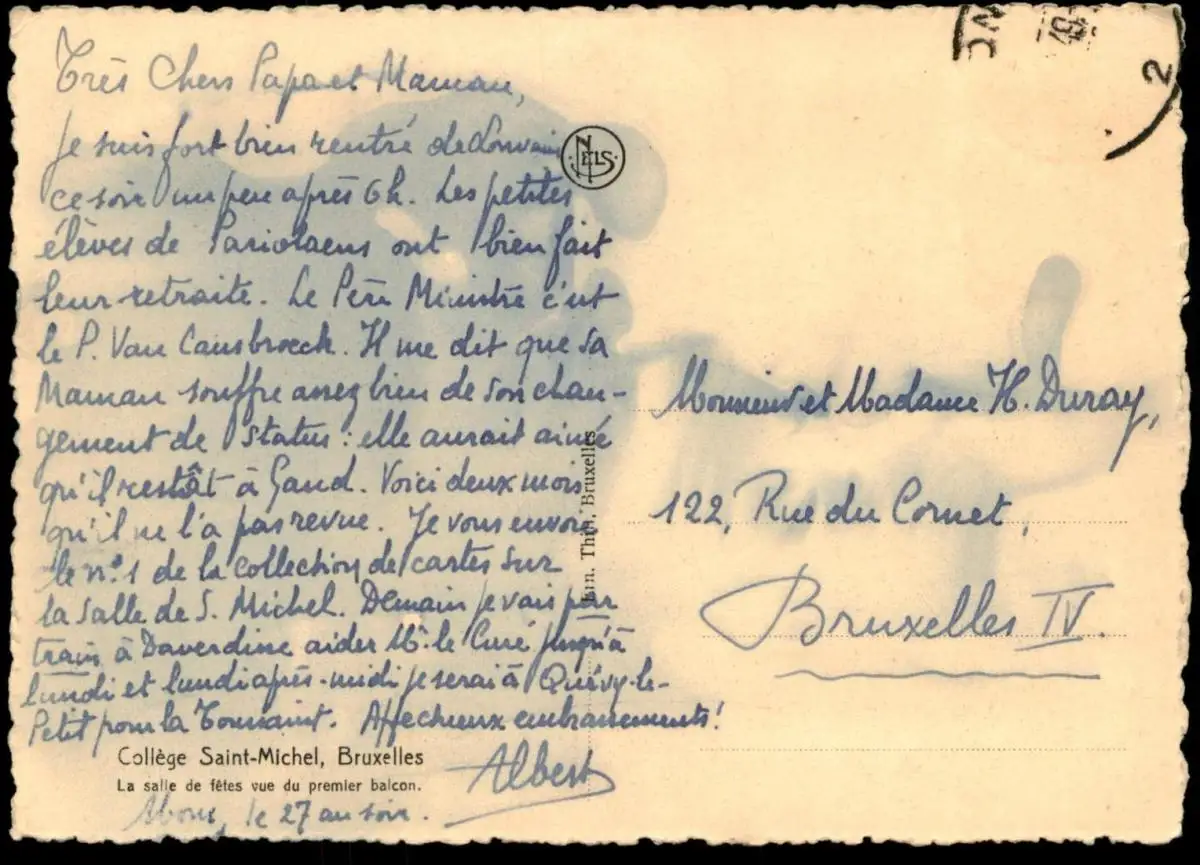 Très Chers Papa et Maman,
Je suis fort bien rentré de Louvain
ce soir un peu après 6h. Les petites
élèves de Pariolaens ont bien fait
leur retraite. Le Père Ministre c'est
le P. Van Cansbroeck. Il me dit que sa
Maman souffre assez bien de son chan-
gement de status : elle aurait aimé
qu'il restât à Gand. Voici deux mois
qu'il ne l'a pas revue. Je vous envoie
le n° 1 de la collection de cartes sur
la salle de S. Michel. Demain je vais par
train à Daverdisse aider Mr le Curé jusqu'à
lundi et lundi après-midi je serai à Quévy-le-
Petit pour la Toussaint. Affectueux embrassements!
Albert
Collège Saint-Michel, Bruxelles
La salle de fêtes vue du premier balcon.
Mons, le 27 au soir.
NELS
Ern. Thill, Bruxelles
Monsieur et Madame H. Duray,
122, Rue du Cornet,
Bruxelles IV.
2